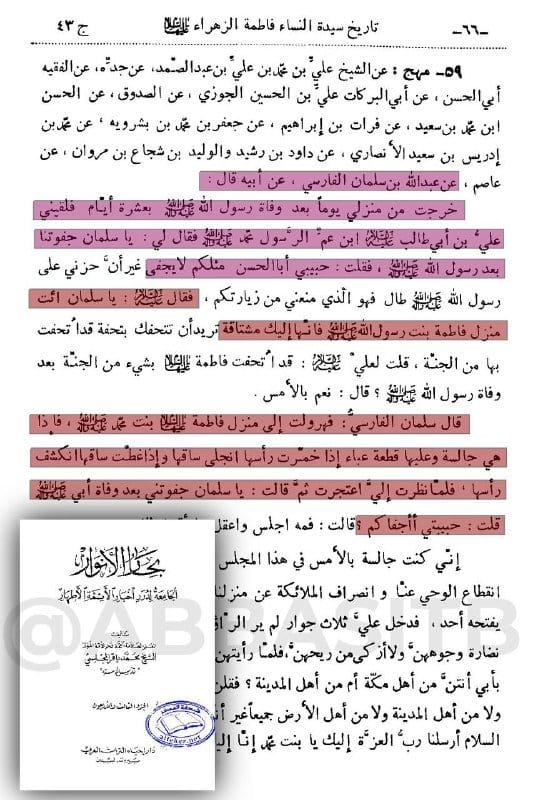 -٦٦- تاريخ سيدة النساء فاطمة الزهراء عليها السلام ج ٤٣
٥٩- مهج : عن الشيخ عليِّ بن محمّد بن عليِّ بن عبدالصّمد، عن جدِّه، عن الفقيه
أبي الحسن ، عن أبي البركات عليِّ بن الحسين الجوزي ، عن الصدوق ، عن الحسن
ابن محمّد بن سعيد ، عن فرات بن إبراهيم ، عن جعفر بن محمّد بن بشرويه ، عن محمّد بن
إدريس بن سعيد الأنصاري ، عن داود بن رشيد والوليد بن شجاع بن مروان ، عن
عاصم ، عن عبدالله بن سلمان الفارسي ، عن أبيه قال :
خرجت من منزلي يوماً بعد وفاة رسول الله ﷺ بعشرة أيّام فلقيني
عليُّ بن أبي طالب عليه السلام ابن عمِّ الرَّسول محمّد ﷺ فقال لي : يا سلمان جفوتنا
بعد رسول الله ﷺ ، فقلت : حبيبي أبا الحسن مثلكم لايجفى غير أنَّ حزني على
رسول الله ﷺ طال فهو الّذي منعني من زيارتكم ، فقال عليه السلام : يا سلمان ائت
منزل فاطمة بنت رسول الله ﷺ فانّها إليك مشتاقة تريد أن تتحفك بتحفة قد اُتحفت
بها من الجنّة ، قلت لعليٍّ عليه السلام : قد اُتحفت فاطمة عليها السلام بشيء من الجنّة بعد
وفاة رسول الله ﷺ ؟ قال : نعم بالأمس .
قال سلمان الفارسيُّ : فهرولت إلى منزل فاطمة عليها السلام بنت محمّد ﷺ ، فاذا
هي جالسة وعليها قطعة عباء إذا خمّرت رأسها انجلى ساقها وإذا غطّت ساقها انكشف
رأسها ، فلمّا نظرت إليَّ اعتجرت ثمَّ قالت : يا سلمان جفوتني بعد وفاة أبي ﷺ
قلت : حبيبتي أأجفاكم ؟ قالت : فمه اجلس واعقل
إنّي كنت جالسة بالأمس في هذا المجلس
انقطاع الوحي عنّا و انصراف الملائكة عن منزلنا
يفتحه أحد ، فدخل عليَّ ثلاث جوار لم ير الرّا
نضارة وجوههنَّ ولا أزكى من ريحهنَّ، فلمّا رأيتهن
بأبي أنتنَّ من أهل مكّة أم من أهل المدينة ؟ فقلن
ولا من أهل المدينة ولا من أهل الأرض جميعاً غير أن
السلام أرسلنا ربُّ العزَّة إليك يا بنت محمّد إنّا إلي
بحار الأنوار
الجامعة لدرر أخبار الأئمة الأطهار
تأليف
الشيخ محمد باقر المجلسي
الجزء الثالث والأربعون
alfeker.net
دار إحياء التراث العربي
بيروت لبنان
@ABBASITB